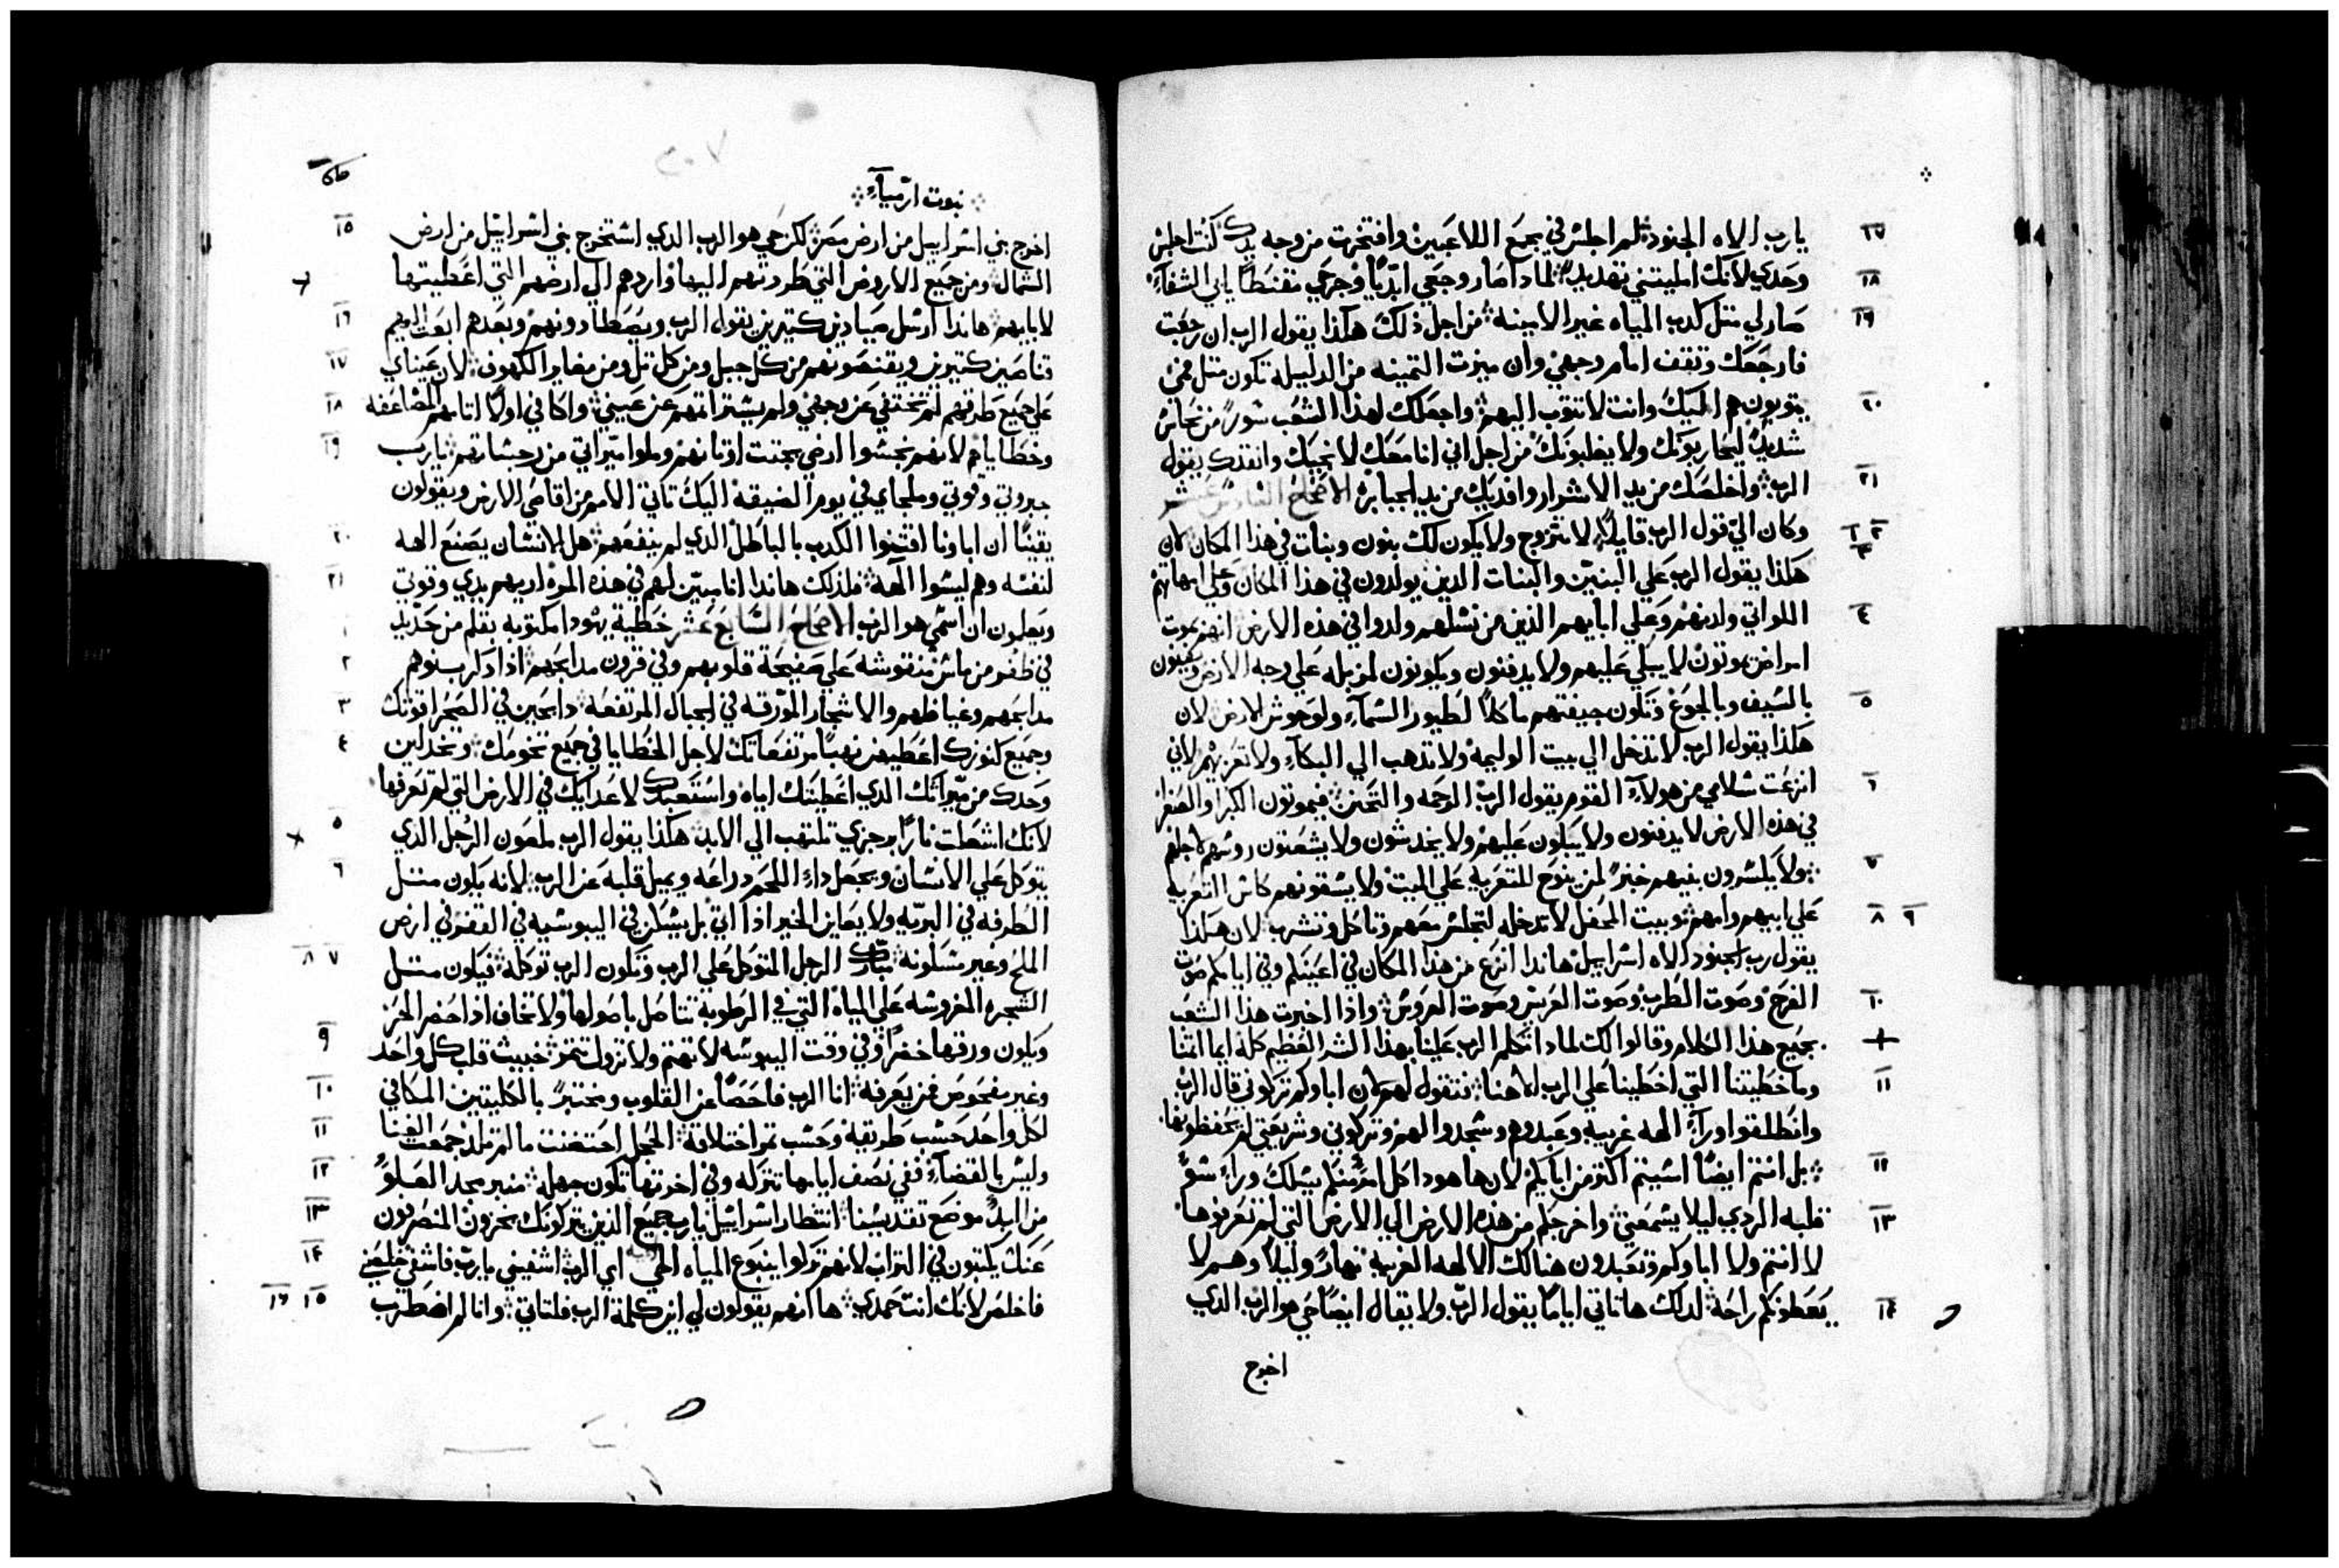 يارب الاه الجنود لم اجلس في مجمع اللاعبين وافتخرت من وجه يدك كنت اجلس
١٧
وحدي لانك امليتني تهديد لمادا صار وجعي ابديا وجرحي مقنطا يابي الشفاء
١٨
صار لي متل كدب المياه غير الامينه من اجل ذلك هكذا يقول الرب ان رجعت
١٩
فارجعك وتقف امام وجهي وان ميزت التمينه من الدليله تكون متل فمي
يتوبون هم اليك وانت لا تتوب اليهم واجعلك لهذا الشعب سورا من نحاس
٢٠
شديد ليحاربونك ولا يغلبونك من اجل اني انا معك لانجيك وانقدك يقول
الرب واخلصك من يد الاشرار وافديك من يد الجبابره الاصحاح السادس عشر
٢١
وكان الي قول الرب قايلا لا تتزوج ولا يكون لك بنون وبنات في هذا المكان لان
٢ ٣
هكذا يقول الرب علي البنين والبنات الدين يولدون في هذا المكان وعلي امهاتهم
اللواتي ولدنهم وعلي ابايهم الذين من نسلهم ولدوا في هذه الارض انهم بموت
٤
امراض يموتون لا يبكي عليهم ولا يدفنون ويكونون لمزبله علي وجه الارض ويفنون
بالسيف وبالجوع وتكون جيفتهم ماكلا لطيور السماء ولوحوش الارض لان
٥
هكذا يقول الرب لا تدخل الي بيت الوليمه ولا تدهب الي البكاء ولا تعزيهم لاني
انزعت سلامي من هولاء القوم يقول الرب الرحمه والتحنن فيموتون الكبار والصغار
٦
في هذه الارض لا يدفنون ولا يبكون عليهم ولا يخدشون ولا يشعتون روسهم لاجلهم
ولا يكسرون بنيهم خبز لمن ينوح للتعزيه علي الميت ولا يسقونهم كاس التعزيه
٧
علي ابيهم وامهم وبيت المحفل لا تدخله لتجلس معهم وتاكل وتشرب لان هكذا
٨ ٩
يقول رب الجنود الاه اسراييل هاندا انزع من هذا المكان في اعينكم وفي ايامكم صوت
الفرح وصوت الطرب وصوت العريس وصوت العروس واذا اخبرت هذا الشعب
١٠
بجميع هذا الكلام وقالوا لك لمادا تكلم الرب علينا بهذا الشر العظيم كله ايما اثمنا
وما خطيتنا التي اخطينا علي الرب الاهنا فتقول لهم لان اباوكم تركوني قال الرب
١١
وانطلقوا وراء الهه غريبه وعبدوهم وسجدوا لهم وتركوني وشريعتي لم يحفظونها
بل انتم ايضا اسيتم اكتر من ابايكم لان ها هودا كل امر منكم يسلك وراء سو
١٢
قلبه الردي ليلا يسمعني واخرجكم من هذه الارض الي الارض التي لم تعرفوها
١٣
لا انتم ولا اباوكم وتعبدون هنالك الالهه الغريبه نهارا وليلا وهم لا
يعطونكم راحه لدلك ها تاتي اياما يقول الرب ولا يقال ايضا حي هو الرب الدي
١٤
اخرج
نبوت ارمياء
اخرج بني اسراييل من ارض مصر لكن حي هو الرب الدي استخرج بني اسراييل من ارض
١٥
الشمال ومن جميع الاروض التي طردتهم اليها واردهم الي ارضهم التي اعطيتها
لابايهم هاندا ارسل صيادين كتيرين يقول الرب ويصطادونهم وبعدهم ابعت اليهم
١٦
قناصين كتيرين ويقتنصونهم من كل جبل ومن كل تل ومن مغاير الكهوف لان عيناي
١٧
علي جميع طرقهم لم تختفي عن وجهي ولم يستتر اتمهم عن عيني واكافي اولا اتامهم المضاعفه
١٨
وخطاياهم لانهم نجسوا ارضي بجتت اوتانهم وملوا ميراتي من رجساتهم يارب
١٩
جبروتي وقوتي وملجاي في يوم الضيقه اليك تاتي الامم من اقاصي الارض ويقولون
يقينا ان اباونا اقتنوا الكدب بالباطل الدي لم ينفعهم هل الانسان يصنع الهه
٢٠
لنفسه وهم ليسوا الهه فلدلك هاندا انا مبين لهم في هذه المره اريهم يدي وقوتي
٢١
ويعلمون ان اسمي هو الرب الاصحاح السابع عشر خطية يهودا مكتوبه بقلم من حديد
١
في ظفر من ماس منقوشه علي صفيحة قلوبهم وفي قرون مدابحهم اذا دكر بنوهم
٢
مدابحهم وغياظهم والاشجار المورقه في الجبال المرتفعه دابحين في الصحرا قوتك
٣
وجميع كنوزك اعطيهن نهبا مرتفعاتك لاجل الخطايا في جميع تخومك وتخدلين
٤
وحدك من ميراتك الدي اعطيتك اياه واستعبدك لاعدايك في الارض التي لم تعرفها
لانك اشعلت نارا برجزي تلتهب الي الابد هكذا يقول الرب ملعون الرجل الدي
٥
يتوكل علي الانسان ويجعل داء اللحم دراعه ويميل قلبه عن الرب لانه يكون متل
٦
الطرفه في البريه ولا يعاين الخير اذا اتي بل يسكن في اليبوسيه في القفر في ارض
الملح وغير مسكونه تبارك الرجل المتوكل علي الرب وتكون الرب توكله فيكون متل
٧ ٨
الشجره المغروسه علي المياه التي في الرطوبه تتاصل باصولها ولا تخاف اذا حضر الحر
ويكون ورقها خضرا وفي وقت اليبوسه لا تهتم ولا تزول تتمر خبيت قلب كل واحد
٩
وغير مفحوص فمن يعرفه انا الرب فاحصا عن القلوب ومختبر بالكليتين المكافي
١٠
لكل واحد حسب طريقه وحسب تمر اختلاقه الحجل احتضنت ما لم تلد جمعت الغنا
١١
وليس بالقضاء ففي نصف ايامها تتركه وفي اخرتها تكون جهله منبر مجد العلو
١٢
من البد موضع تقديسنا انتظار اسراييل يارب جميع الذين يتركونك يخزون المنصرفون
١٣
عنك يكتبون في التراب لانهم تركوا ينبوع المياه الحيه اي الرب اشفيني يارب فاشفي خلصني
١٤
فاخلص لانك انت حمدي ها انهم يقولون لي اين كلمة الرب فلتاتي وانا لم اضطرب
١٥ ١٦